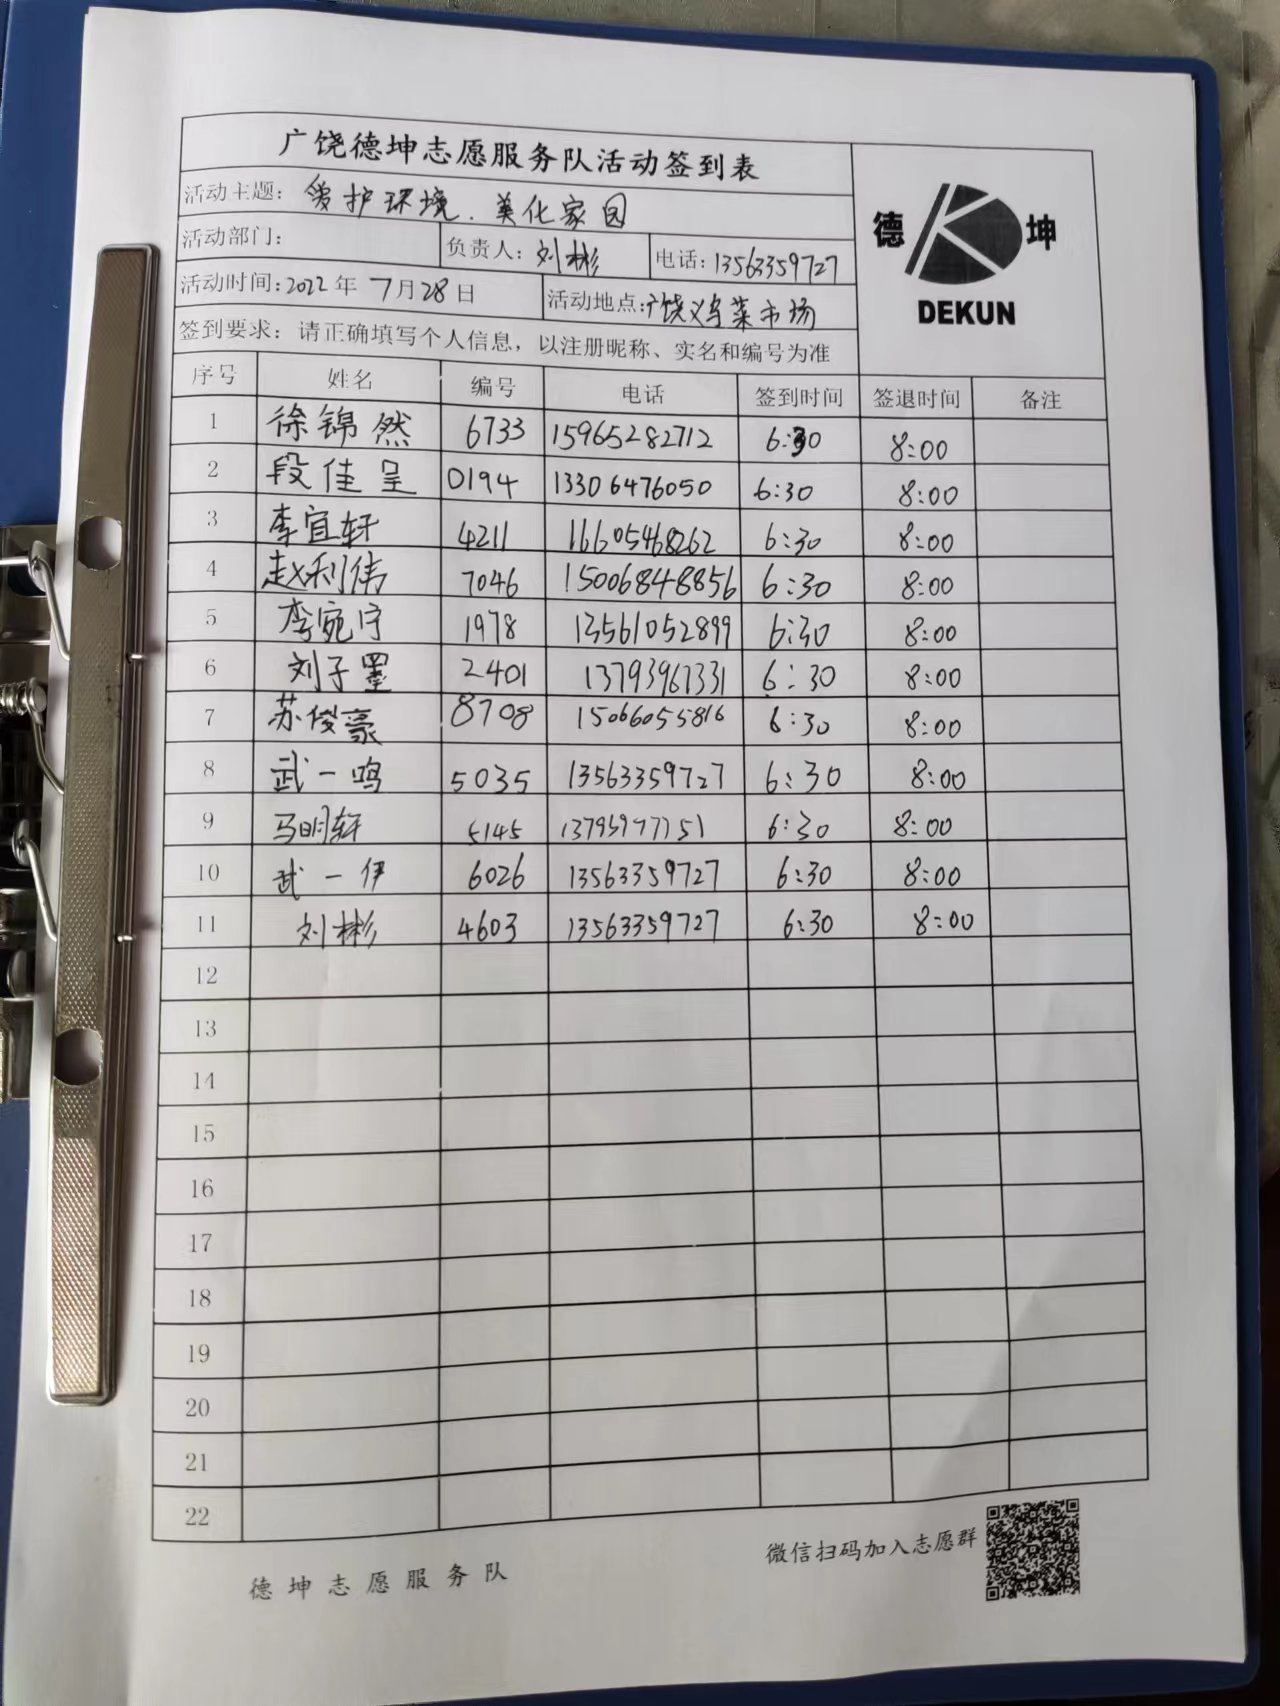 广饶德坤志愿服务队活动签到表
活动主题：爱护环境.美化家园
活动部门： 负责人：刘彬 电话：13563359727
活动时间：2022年7月28日 活动地点：广饶义乌菜市场
签到要求：请正确填写个人信息，以注册昵称、实名和编号为准
德 坤
DEKUN
序号 姓名 编号 电话 签到时间 签退时间 备注
1 徐锦然 6733 15965282712 6:30 8:00
2 段佳呈 0194 13306476050 6:30 8:00
3 李宜轩 4211 16605468262 6:30 8:00
4 赵利伟 7046 15006848856 6:30 8:00
5 李宛宁 1978 13561052899 6:30 8:00
6 刘子墨 2401 13793967331 6:30 8:00
7 苏俊豪 8708 15066055816 6:30 8:00
8 武一鸣 5035 13563359727 6:30 8:00
9 马明轩 5145 6:30 8:00
10 武一伊 6026 13563359727 6:30 8:00
11 刘彬 4603 13563359727 6:30 8:00
12
13
14
15
16
17
18
19
20
21
22
微信扫码加入志愿群
德坤志愿服务队